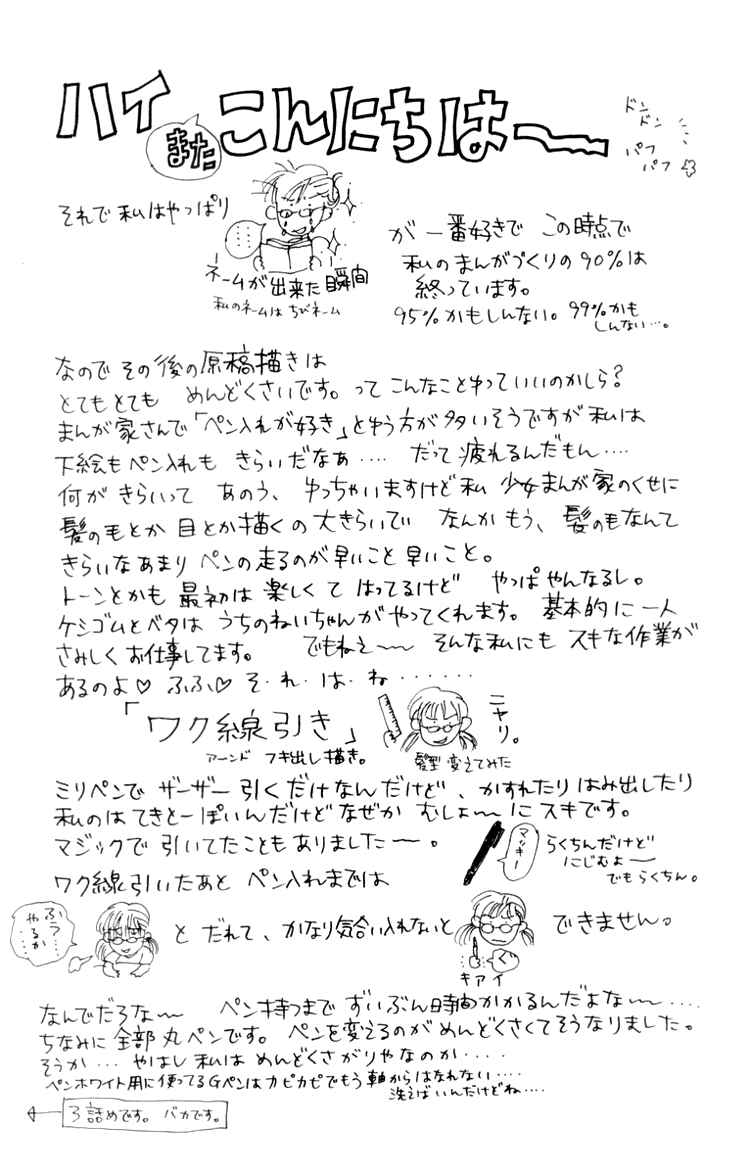 ハイ また こんにちは〜
ドン
ドン
パフ
パフ
それで 私はやっぱり
ネームが出来た瞬間
私のネームは ちびネーム
が 一番好きで この時点で
私のまんがづくりの 90%は
終っています。
95%かもしんない。 99%かも
しんない…。
なので その後の原稿描きは
とてもとても めんどくさいです。って こんなことゆっていいのかしら?
まんが家さんで「ペン入れが好き」とゆう方が多いそうですが 私は
下絵もペン入れも きらいだなあ‥‥ だって疲れるんだもん‥‥
何が きらいって あのう、ゆっちゃいますけど 私 少女まんが家のくせに
髪の毛とか 目とか描くの 大きらいで なんか もう、髪の毛なんて
きらいなあまり ペンの走るのが早いこと 早いこと。
トーンとかも 最初は 楽しくて はってるけど やっぱ やんなるし。
ケシゴムとベタは うちのねいちゃんがやってくれます。 基本的に一人
さみしく お仕事してます。 でもねえ〜〜 そんな私にも スキな作業が
あるのよ♡ ふふ♡ そ・れ・は・ね・・・・・・
「ワク線引き」
アーンド フキ出し描き。
ニヤリ。
髪型 変えてみた
ミリペンで ザーザー 引くだけなんだけど、かすれたり はみ出したり
私のは てきとーっぽいんだけど なぜか むしょ〜に スキです。
マジックで 引いてたことも ありました〜。
マッキー
らくちんだけど
にじむよ〜
でも らくちん。
ワク線引いたあと ペン入れまでは
ふう…
やるか…
と だれて、かなり気合い入れないと
キアイ
できません。
なんでだろな〜 ペン持つまで ずいぶん時間かかるんだよな〜‥‥
ちなみに 全部 丸ペンです。 ペンを変えるのが めんどくさくて そうなりました。
そうか… やはし 私は めんどくさがりやなのか‥‥
ペンホワイト用に使ってるGペンは カピカピで もう 軸からはなれない‥‥
洗えばいんだけどね‥‥
3詰めです。 バカです。